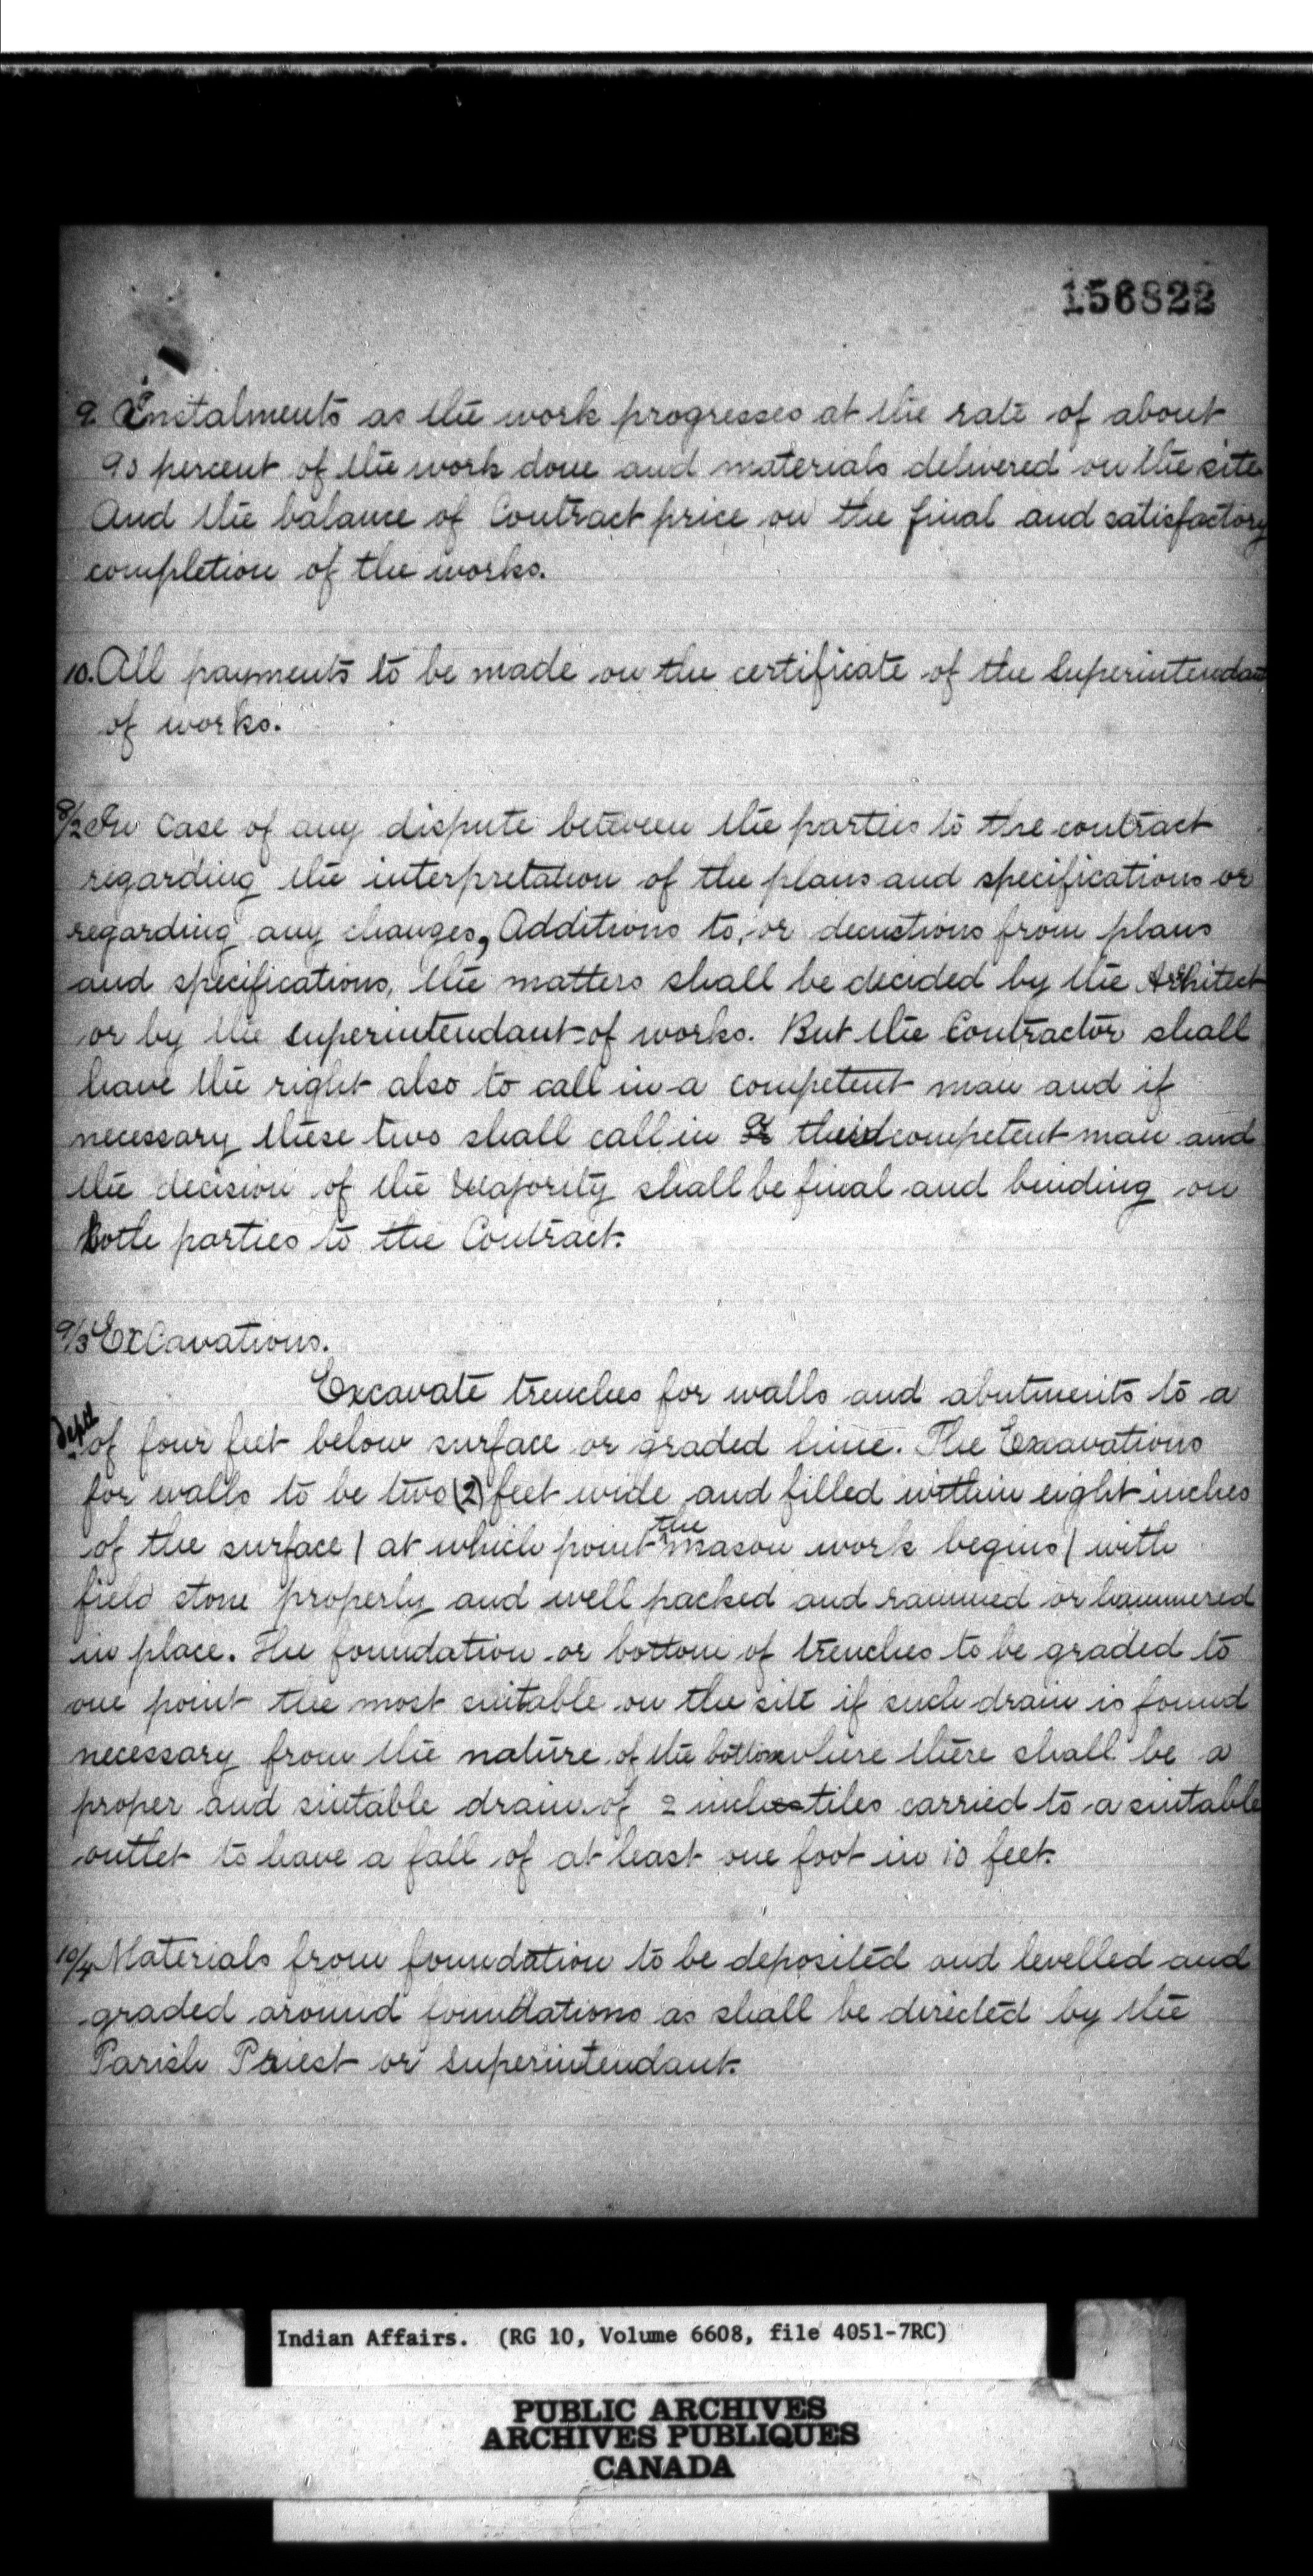 156822
9. Instalments as the work progresses at the rate of about
90 percent of the work done and materials delivered on the site
And the balance of Contract price on the final and satisfactory
completion of the works.
10. All payments to be made on the certificate of the Superintendant
of works.
8/2 In Case of any dispute between the parties to the contract
regarding the interpretation of the plans and specifications or
regarding any changes, Additions to, or deductions from plans
and specifications, the matters shall be decided by the Architect
or by the superintendant of works. But the Contractor shall
have the right also to call in a competent man and if
necessary these two shall call in a third competent man and
the decision of the Majority shall be final and binding on
Both parties to the Contract.
9/3 ExCavations.
Excavate trenches for walls and abutments to a
depth of four feet below surface or graded line. The Excavations
for walls to be two (2) feet wide and filled within eight inches
of the surface / at which point the mason work begins / with
field stone properly and well packed and rammed or hammered
in place. The foundation or bottom of trenches to be graded to
one point the most suitable on the site if such drain is found
necessary from the nature of the bottom where there shall be a
proper and suitable drain of 2 inch tiles carried to a suitable
outlet to have a fall of at least one foot in 10 feet.
10/4 Materials from foundation to be deposited and levelled and
graded around foundations as shall be directed by the
Parish Priest or superintendant.
Indian Affairs. (RG 10, Volume 6608, file 4051-7RC)
PUBLIC ARCHIVES
ARCHIVES PUBLIQUES
CANADA